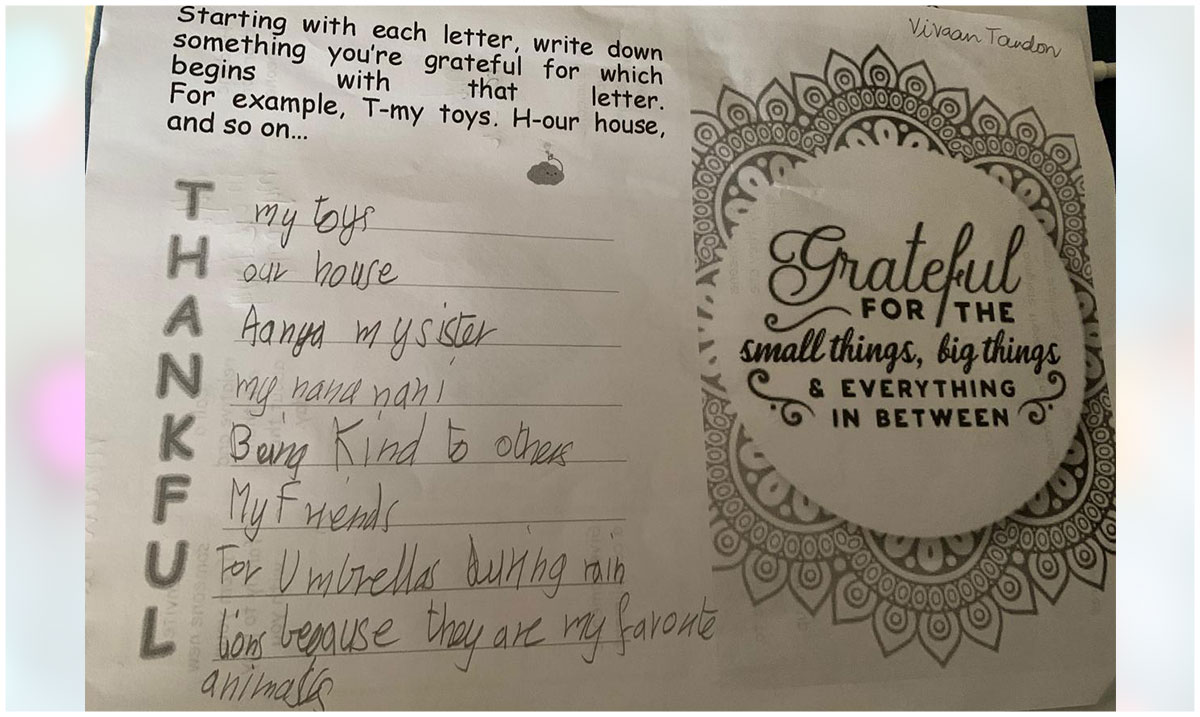 Starting with each letter, write down
something you're grateful for which
begins with that letter.
For example, T-my toys. H-our house,
and so on...
Vivaan Tandon
T my toys
H our house
A Aanya my sister
N my nana nani
K Being Kind to others
F My Friends
U For Umbrellas during rain
L lions because they are my favorite
animals
Grateful
FOR THE
small things, big things
& EVERYTHING
IN BETWEEN